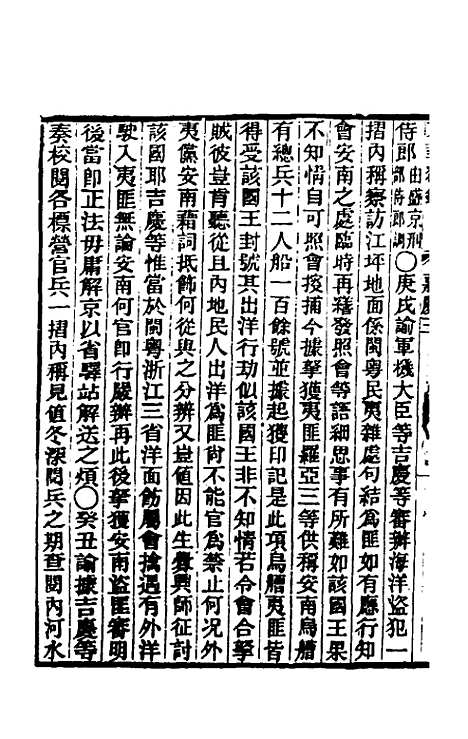 侍郎由盛京刑部侍郎調○庚戌諭軍機大臣等吉慶等審辦海洋盜犯一
摺內稱察訪江坪地面係閩粵民夷雜處勾結為匪如有應行知
會安南之處臨時再繕發照會等語細思事有所難如該國王果
不知情自可照會搜捕今據拏獲夷匪羅亞三等供稱安南烏艚
有總兵十二人船一百餘號並據起獲印記是此項烏艚夷匪皆
得受該國王封號其出洋行劫似該國王非不知情若令會合拏
賊彼豈肯聽從且內地民人出洋為匪尚不能官為禁止何况外
夷儻安南藉詞抵飾何從與之分辨又豈值因此生釁興師征討
該國耶吉慶等惟當於閩粵浙江三省洋面飭屬會擒遇有外洋
駛入夷匪無論安南何官即行嚴辦再此後拏獲安南盜匪審明
後當即正法毋庸解京以省驛站解送之煩○癸丑諭據吉慶等
奏校閱各標營官兵一摺內稱見值冬深閱兵之期查閱內河水